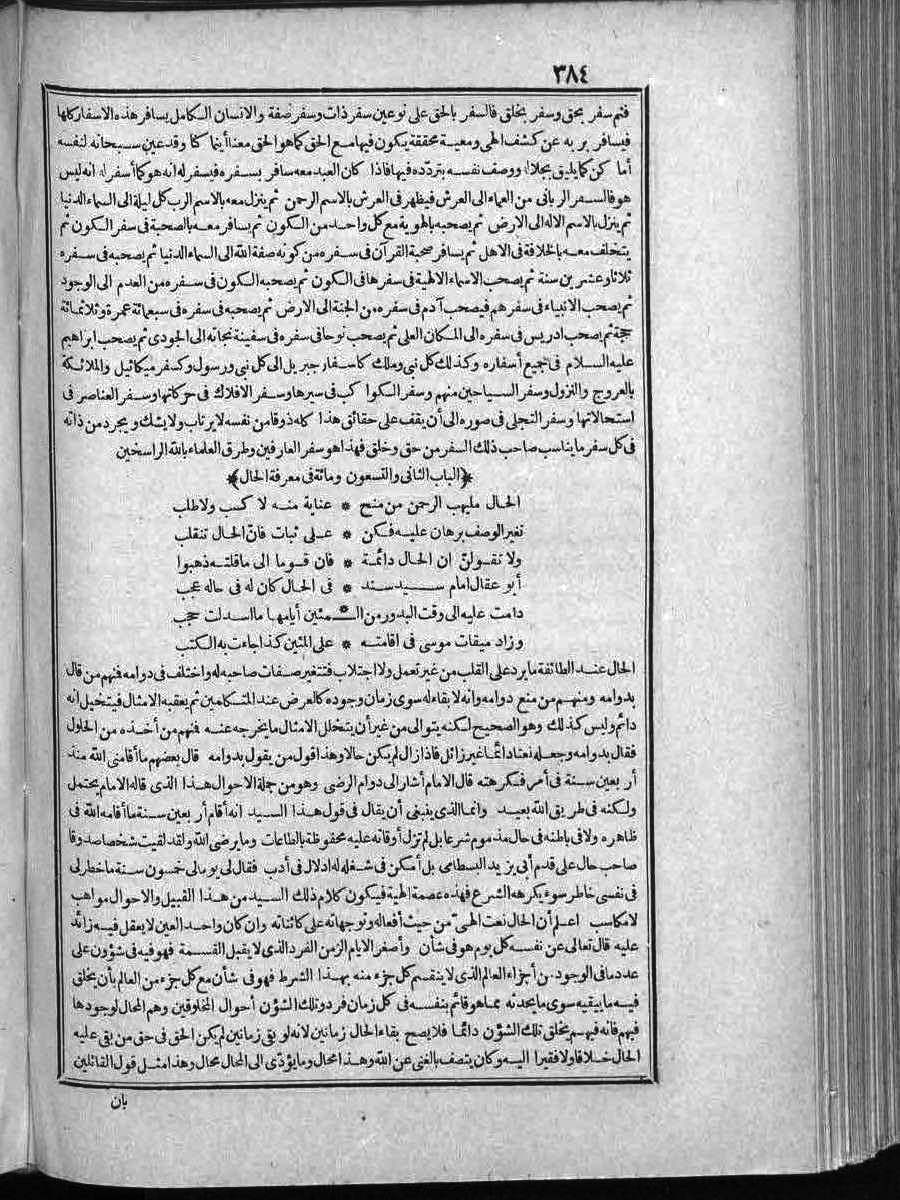 ٣٨٤
فثم سفر بحق وسفر بخلق فالسفر بالحق على نوعين سفر ذات وسفر صفة والانسان الكامل يسافر هذه الاسفار كلها
فيسافر بربه عن كشف الهى ومعية محققة يكون فيها مع الحق كما هو الحق معنا أينما كنا وقد عين سبحانه لنفسه
أما كن كما يليق بجلاله ووصف نفسه بتردّده فيها فاذا كان العبد معه سافر بسفره فيسفر له انه هو كما أسفر له انه ليس
هو فالسفر الربانى من العماء الى العرش فيظهر فى العرش بالاسم الرحمن ثم ينزل معه بالاسم الرب كل ليلة الى السماء الدنيا
ثم ينزل بالاسم الاله الى الارض ثم يصحبه بالهوية مع كل واحد من الكون ثم يسافر معه بالصحبة فى سفر الكون ثم
يتخلف معه بالخلافة فى الاهل ثم يسافر صحبة القرآن فى سفره من كونه صفة الله الى السماء الدنيا ثم يصحبه فى سفره
ثلاثا وعشرين سنة ثم يصحب الاسماء الالهية فى سفرها فى الكون ثم يصحبه الكون فى سفره من العدم الى الوجود
ثم يصحب الانبياء فى سفرهم فيصحب آدم فى سفره من الجنة الى الارض ثم يصحبه فى سفره فى سبعمائة عمرة وثلاثمائة
حجة ثم يصحب ادريس فى سفره الى المكان العلى ثم يصحب نوحا فى سفره فى سفينة نجاته الى الجودى ثم يصحب ابراهيم
عليه السلام فى جميع أسفاره وكذلك كل نبى وملك كاسفار جبريل الى كل نبى ورسول وكسفر ميكائيل والملائكة
بالعروج والنزول وسفر السياحين منهم وسفر الكواكب فى سيرها وسفر الافلاك فى حركاتها وسفر العناصر فى
استحالاتها وسفر التجلى فى صوره الى أن يقف على حقائق هذا كله ذوقا من نفسه لا يرتاب ولا يشك ويجرد من ذاته
فى كل سفر ما يناسب صاحب ذلك السفر من حق وخلق فهذا هو سفر العارفين وطرق العلماء بالله الراسخين
﴿الباب الثانى والتسعون ومائة فى معرفة الحال﴾
الحال ما يهب الرحمن من منح * عناية منه لا كسب ولا طلب
تغير الوصف برهان عليه فكن * على ثبات فانّ الحال تنقلب
ولا تقولنّ ان الحال دائمة * فان قوما الى ما قلته ذهبوا
أبو عقال امام سيد سند * فى الحال كان له فى حاله عجب
دامت عليه الى وقت البدور من الـ * ـمئين أيامها ما اسدلت حجب
وزاد ميقات موسى فى اقامته * على المئين كذا جاءت به الكتب
الحال عند الطائفة ما يرد على القلب من غير تعمل ولا اجتلاب فتتغير صفات صاحبه له واختلف فى دوامه فنهم من قال
بدوامه ومنهم من منع دوامه وانه لا بقاء له سوى زمان وجوده كالعرض عند المتكلمين ثم يعقبه الامثال فيتخيل انه
دائم وليس كذلك وهو الصحيح لكنه يتوالى من غير أن يتخلل الامثال ما يخرجه عنه فنهم من أخذه من الحلول
فقال بدوامه وجعله نعتا دائما غير زائل فاذا زال لم يكن حالا وهذا قول من يقول بدوامه قال بعضهم ما أقامنى الله منذ
أربعين سنة فى أمر فكرهته قال الامام أشار الى دوام الرضى وهو من جملة الاحوال هذا الذى قاله الامام يحتمل
ولكنه فى طريق الله بعيد وانما الذى ينبغى أن يقال فى قول هذا السيد انه أقام أربعين سنة ما أقامه الله فى
ظاهره ولا فى باطنه فى حال مذموم شرعا بل لم تزل أوقاته عليه محفوظة بالطاعات وما يرضى الله ولقد لقيت شخصا صدوقا
صاحب حال على قدم أبى يزيد البسطامى بل أمكن فى شغله له ادلال فى أدب فقال لى يوما لى خمسون سنة ما خطر لى
فى نفسى خاطر سوء يكرهه الشرع فهذه عصمة الهية فيكون كلام ذلك السيد من هذا القبيل والاحوال مواهب
لا مكاسب اعلم أن الحال نعت الهىّ من حيث أفعاله وتوجهاته على كائناته وان كان واحد العين لا يعقل فيه زائد
عليه قال تعالى عن نفسه كل يوم هو فى شأن وأصغر الايام الزمن الفرد الذى لا يقبل القسمة فهو فيه فى شؤون على
عدد ما فى الوجود من أجزاء العالم الذى لا ينقسم كل جزء منه بهذا الشرط فهو فى شأن مع كل جزء من العالم بأن يخلق
فيه ما يبقيه سوى ما يحدثه مما هو قائم بنفسه فى كل زمان فرد وتلك الشؤن أحوال المخلوقين وهم المحال لوجودها
فيهم فانه فيهم يخلق تلك الشؤن دائما فلا يصح بقاء الحال زمانين لانه لو بقى زمانين لم يكن الحق فى حق من بقى عليه
الحال خلاقا ولا فقيرا اليه وكان يتصف بالغنى عن الله وهذا محال وما يؤدّى الى المحال محال وهذا مثل قول القائلين
بان